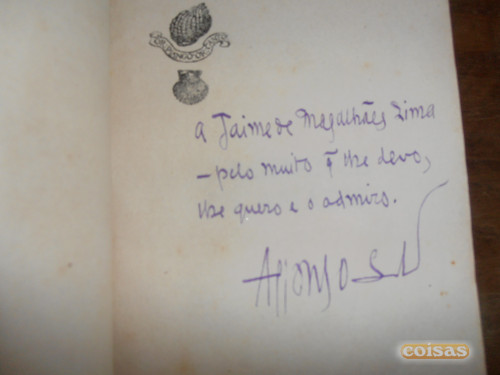 A Jaime de Magalhães Lima
– pelo muito q̃ lhe devo,
lhe quero e o admiro.
Afonso
coisas